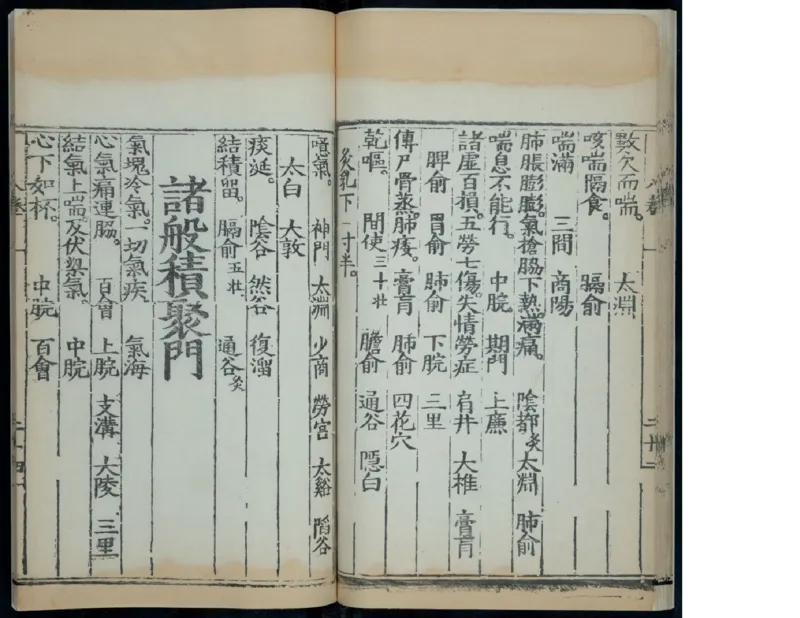 數欠而喘。 太淵
咳喘隔食。 膈俞
喘滿 三間 商陽
肺脹膨膨。氣搶脇下熱。滿痛。 陰都灸 太淵 肺俞
喘息不能行。 中脘 期門 上廉
諸虛百損。五勞七傷。失情勞症 肩井 大椎 膏肓
脾俞 胃俞 肺俞 下脘 三里
傳尸骨蒸。肺痿。 膏肓 肺俞 四花穴
乾嘔。 間使三十壯 膽俞 通谷 隱白
灸乳下一寸半。
噫氣。 神門 太淵 少商 勞宮 太谿 陷谷
太白 大敦
痰涎。 陰谷 然谷 復溜
結積留。 膈俞五壯 通谷灸
諸般積聚門
氣塊冷氣。一切氣疾 氣海
心氣痛連脇。 百會 上脘 支溝 大陵 三里
結氣上喘。及伏梁氣。 中脘
心下如杯。 中脘 百會